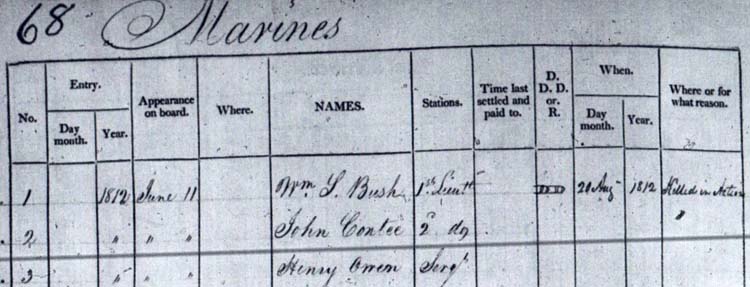 68 Marines
No. Entry. Day month. Year. Appearance on board. Where. NAMES. Stations. Time last settled and paid to. D. D. D. or. R. When. Day month. Year. Where or for what reason.
1 1812 June 11 Wm. S. Bush 1st Lieutt DD 20 Augt 1812 Killed in Action
2 " " " John Contee 2d do "
3 " " " Henry Owen Sergt